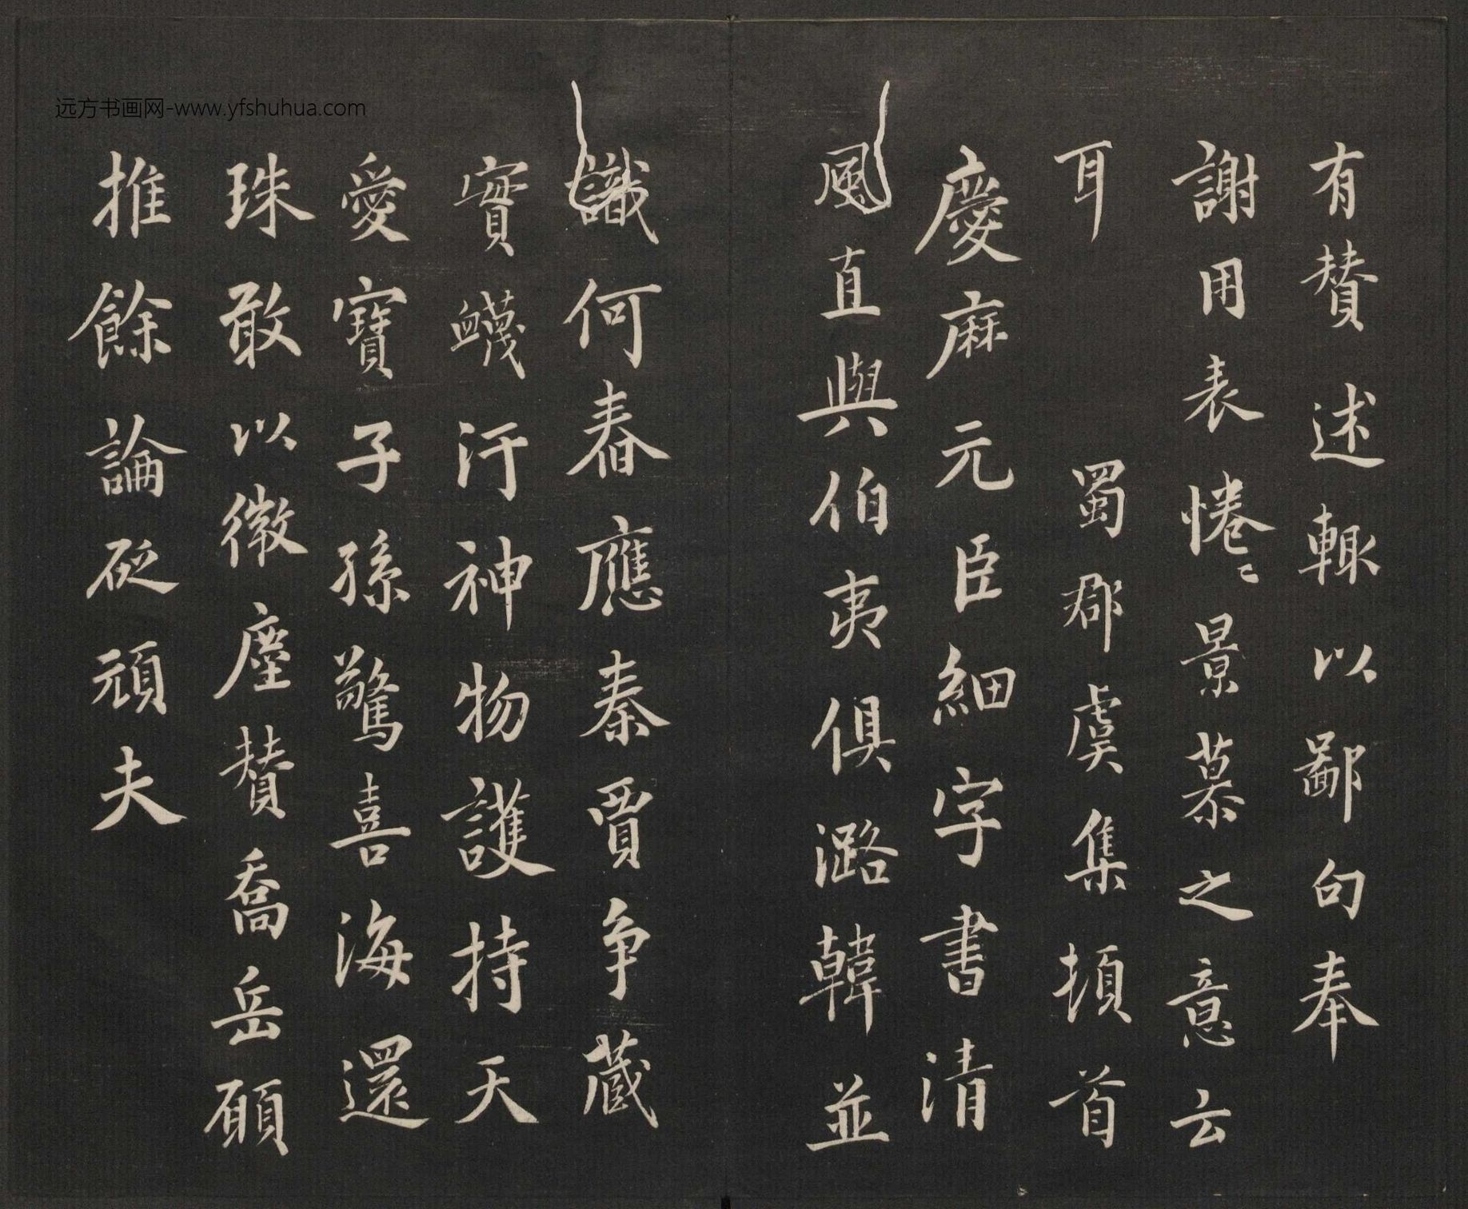 远方书画网-www.yfshuhua.com
有賛述輙以鄙句奉
謝用表惓〻景慕之意云
耳 蜀郡虞集頓首
慶麻元臣細字書清
風直與伯夷俱潞韓並
識何春應秦賈争藏
實衊汙神物護持天
愛寶子孫驚喜海還
珠敢以微塵賛喬岳願
推餘論砭頑夫